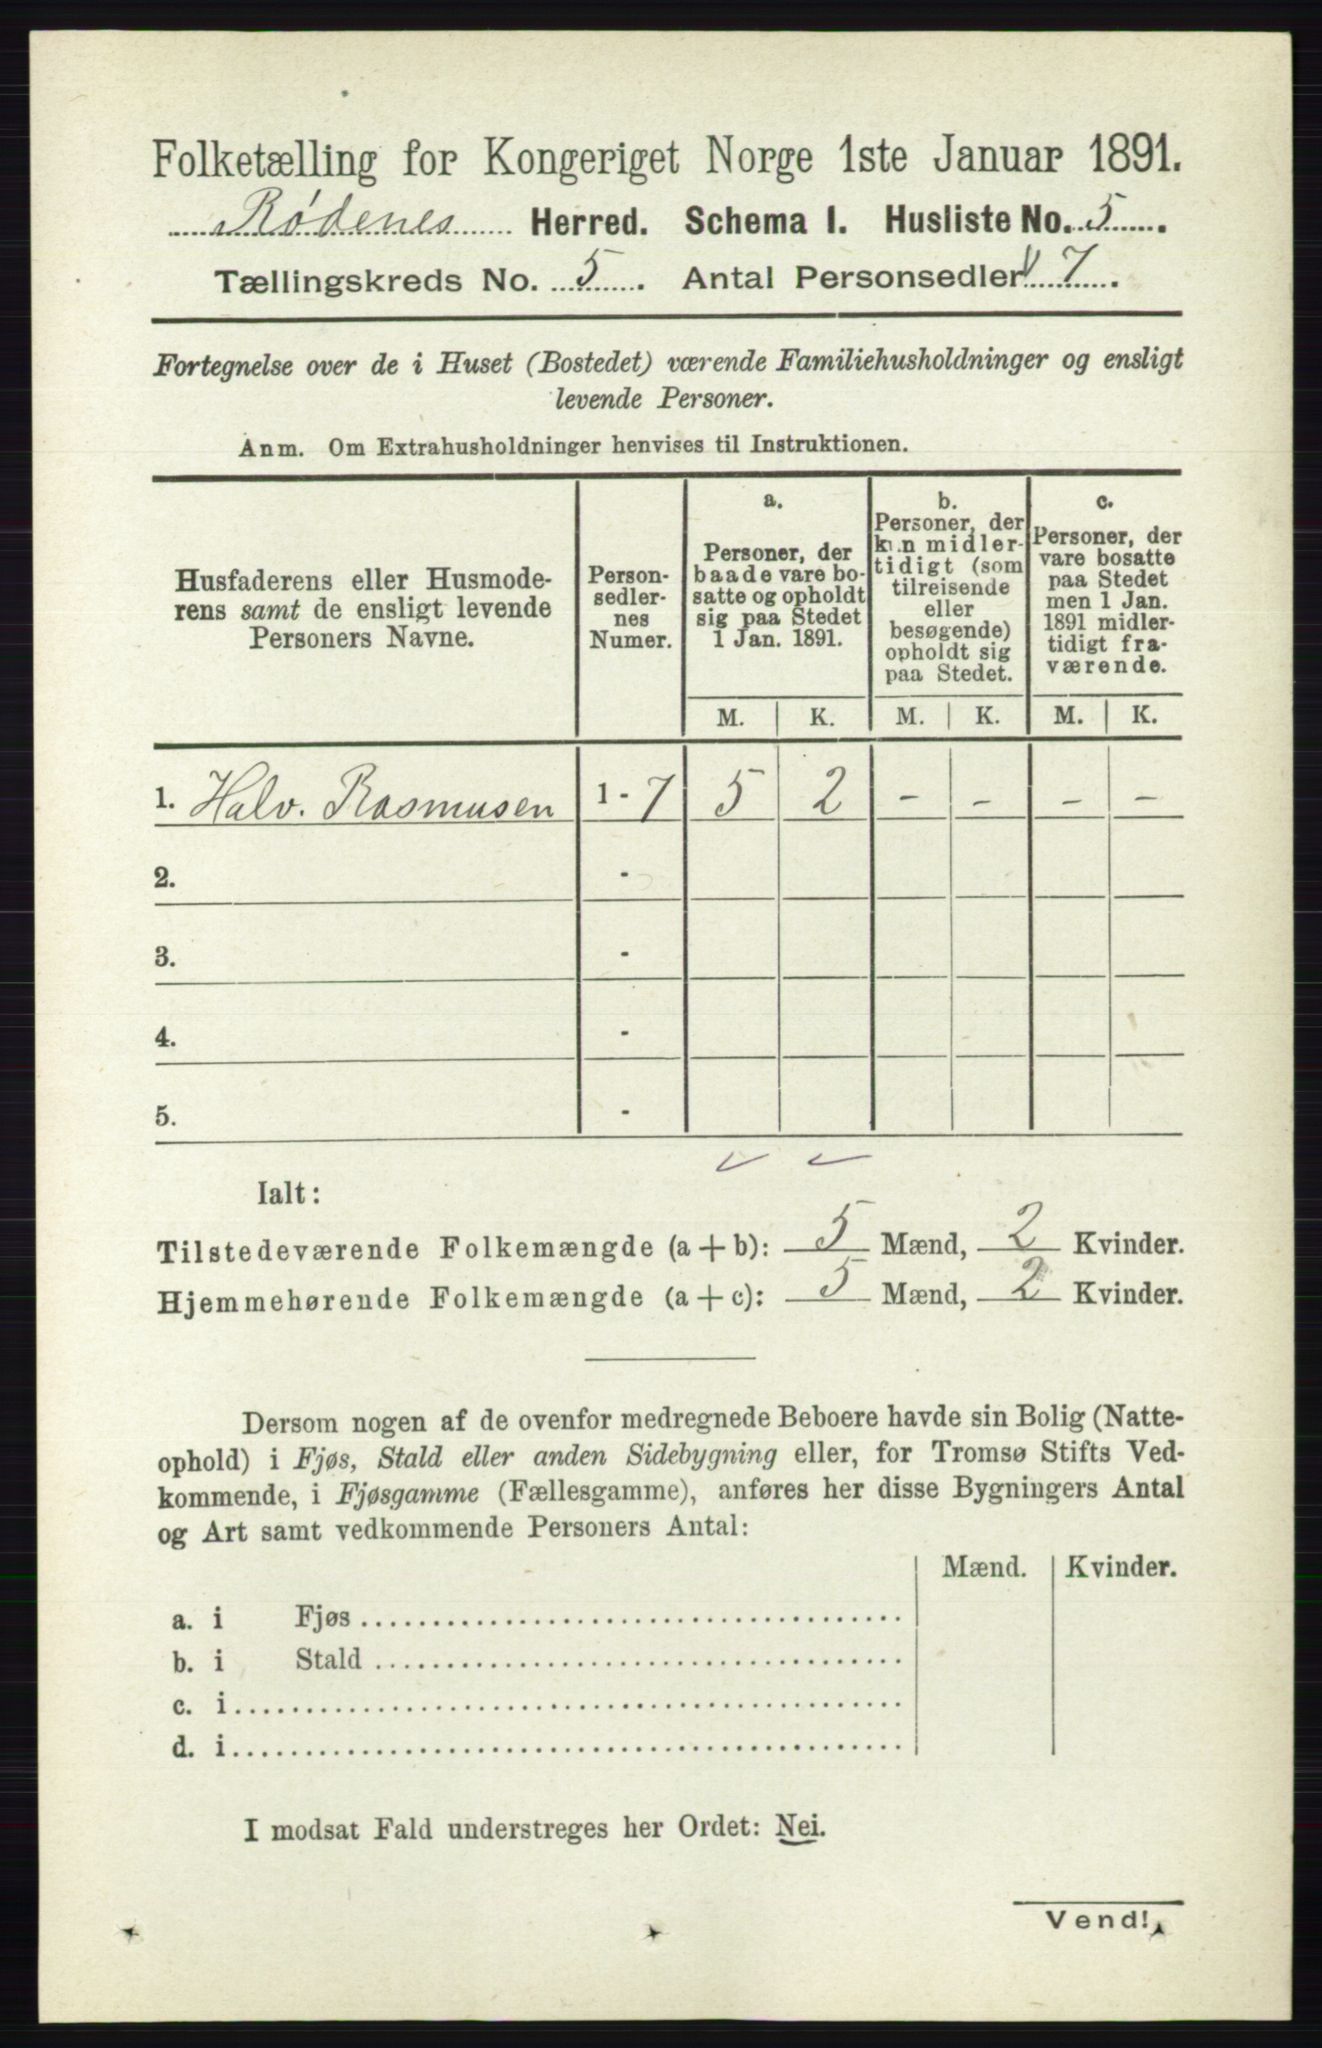 Folketælling for Kongeriget Norge 1ste Januar 1891.
Rødenes Herred. Schema I. Husliste No. 5.
Tællingskreds No. 5. Antal Personsedler 7.
Fortegnelse over de i Huset (Bostedet) værende Familiehusholdninger og ensligt
levende Personer.
Anm. Om Extrahusholdninger henvises til Instruktionen.
Husfaderens eller Husmode-
rens samt de ensligt levende
Personers Navne.
Person-
sedler-
nes
Numer.
a.
Personer, der
baade vare bo-
satte og opholdt
sig paa Stedet
1 Jan. 1891.
b.
Personer, der
kun midler-
tidigt (som
tilreisende
eller
besøgende)
opholdt sig
paa Stedet.
c.
Personer, der
vare bosatte
paa Stedet
men 1 Jan.
1891 midler-
tidigt fra-
værende.
M. K. M. K. M. K.
1. Halv. Rasmusen 1 - 7 5 2 - - - -
2. -
3. -
4. -
5. -
Ialt:
Tilstedeværende Folkemængde (a + b): 5 Mænd, 2 Kvinder.
Hjemmehørende Folkemængde (a + c): 5 Mænd, 2 Kvinder.
Dersom nogen af de ovenfor medregnede Beboere havde sin Bolig (Natte-
ophold) i Fjøs, Stald eller anden Sidebygning eller, for Tromsø Stifts Ved-
kommende, i Fjøsgamme (Fællesgamme), anføres her disse Bygningers Antal
og Art samt vedkommende Personers Antal:
Mænd. Kvinder.
a. i Fjøs
b. i Stald
c. i
d. i
I modsat Fald understreges her Ordet: Nei.
Vend!